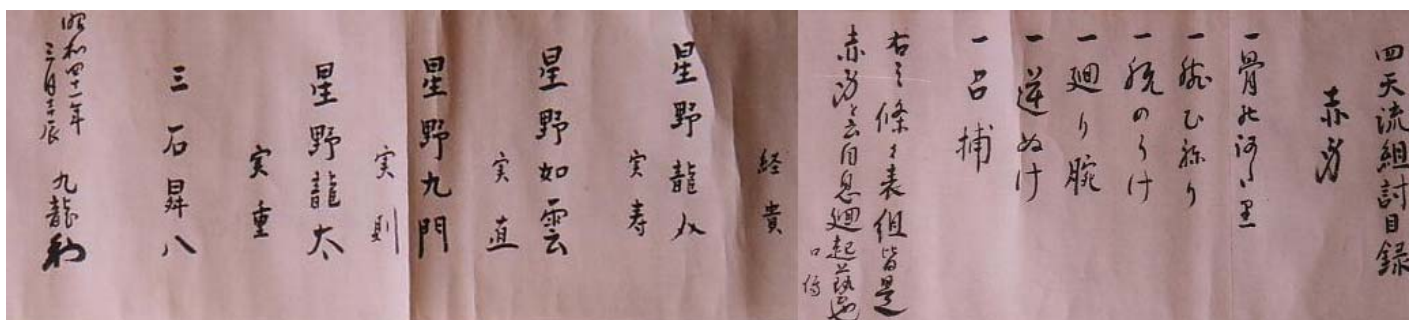 四天流組討目録
赤身
一骨
一ひねり
一のうけ
一廻り腕
一逆ぬけ
一呂捕
右之條々表組皆是
赤身と云自息廻起
口傳
経貴
星野龍八
実寿
星野如雲
実直
星野九門
実則
星野龍太
実重
三石昇八
昭和四十一年
三月吉辰 九龍